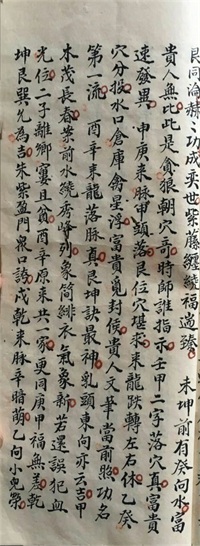 艮同淪赫〻功成奕世紫藤纏繞福遄臻　未坤前有癸向水富
貴人無比此是貪狼朝穴奇時師誰指示壬甲二字落穴真富貴
速發異　申庚来脉甲頭落艮位穴堪求来龍跌轉左右休乙癸
穴分按水口倉庫禽星浮富貴覓封侯貴人文華當前照功名
第一流　酉辛来龍落脉真艮坤訣最神乳頭東向亦云吉甲
木茂長春案前水繞秀峰列象簡緋衣氣象新若還誤犯血
光位二子離鄉寠且貧酉辛原来共一家更同庚甲福無差乾
坤艮巽允為吉朱紫盈門衆口誇戌乾来脉辛暗萌乙向小兒榮